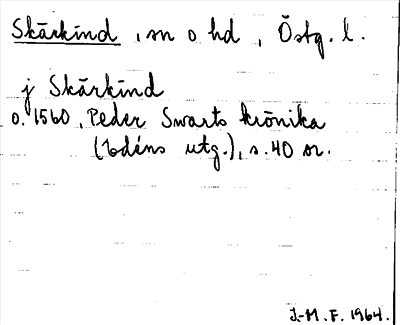 Skärkind, sn o hd, Östg. l.
j Skärkind
o. 1560, Peder Swarts krönika
(Edéns utg.), s. 40 nr.
J.-M. F. 1964.